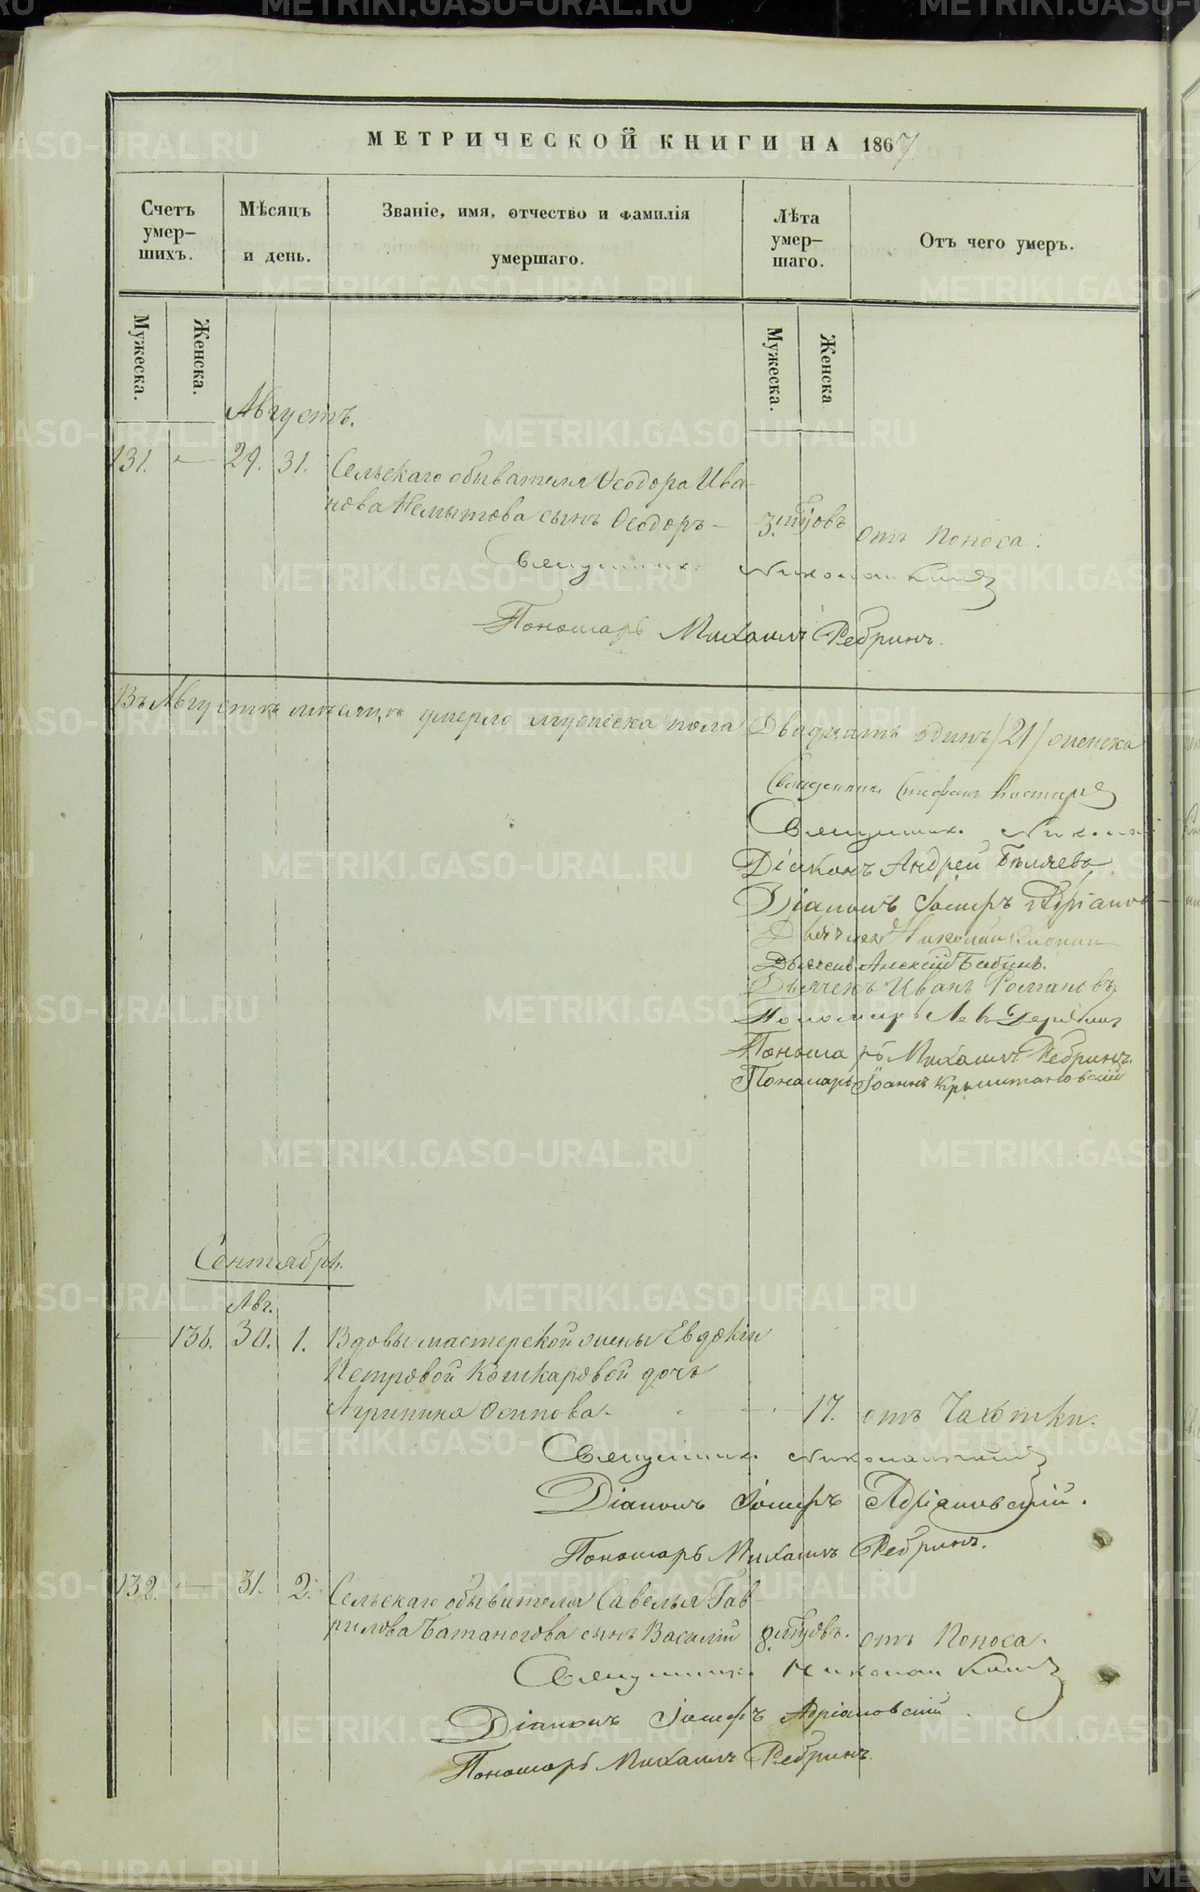 МЕТРИЧЕСКОЙ КНИГИ НА 1867
Счетъ умер- шихъ.
Мѣсяцъ и день.
Званіе, имя, отчество и фамилія умершаго.
Лѣта умер- шаго.
Отъ чего умеръ.
Мужеска. Женска. Мужеска. Женска
Августъ.
131. — 29. 31. Сельскаго обывателя Ѳеодора Ива-
нова Немытова сынъ Ѳеодоръ — 3. отъ Поноса.
Священникъ Николай
Пономарь Михаилъ Ребринъ.
Въ Августѣ мѣсяцѣ умерло мужеска пола Двадцать одинъ /21/ женска
Священникъ Стефанъ
Священникъ Николай
Діаконъ Андрей Бѣляевъ
Діаконъ Іосифъ Адріанов-
Дьячекъ Николай
Дьячекъ Алексій Бабинъ.
Дьячекъ Иванъ Романовъ
Пономарь Левъ
Пономарь Михаилъ Ребринъ.
Пономарь Іоаннъ
Сентябрь.
Авг.
— 136. 30. 1. Вдовы мастерской жены Евдокіи
Петровой Кошкаровой дочь
Агрипина Осипова. 17. отъ Чахотки.
Священникъ Николай
Діаконъ Іосифъ Адріановскій.
Пономарь Михаилъ Ребринъ.
132. — 31. 2. Сельскаго обывателя Савелья Гав-
рилова Батаногова сынъ Василій 8. отъ Поноса.
Священникъ Николай
Діаконъ Іосифъ Адріановскій
Пономарь Михаилъ Ребринъ.
METRIKI.GASO-URAL.RU